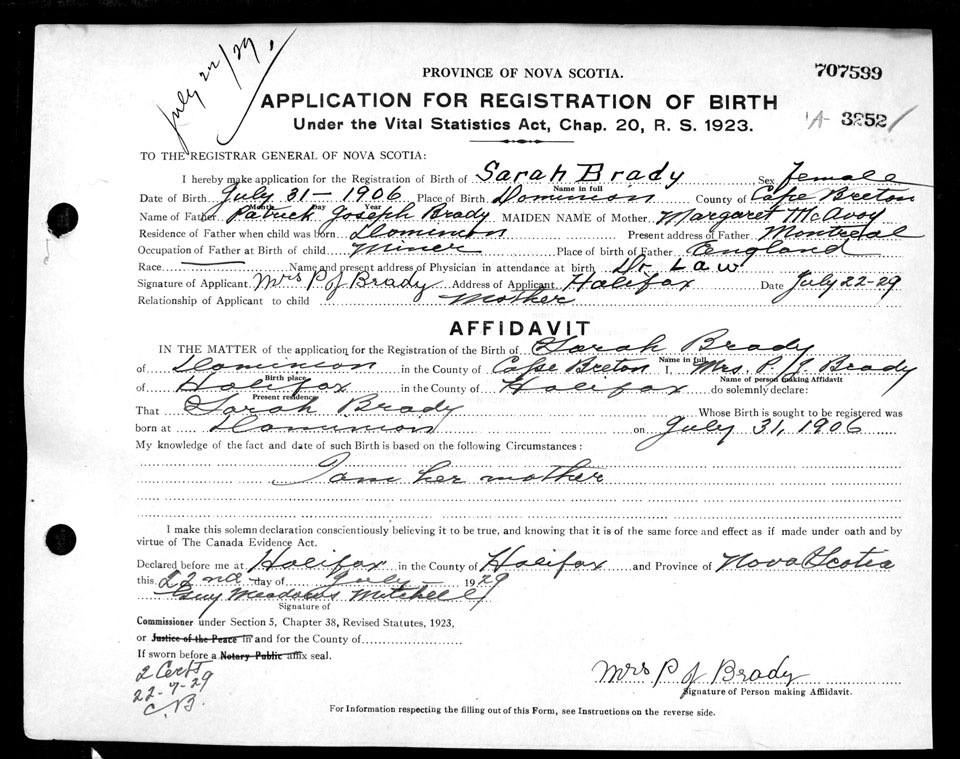 July 22/29,
707599
PROVINCE OF NOVA SCOTIA.
APPLICATION FOR REGISTRATION OF BIRTH
A- 3252
Under the Vital Statistics Act, Chap. 20, R. S. 1923.
TO THE REGISTRAR GENERAL OF NOVA SCOTIA:
I hereby make application for the Registration of Birth of Sarah Brady Sex Female
Name in full
Date of Birth July 31 - 1906 Place of Birth Dominion County of Cape Breton
Month Day Year
Name of Father Patrick Joseph Brady MAIDEN NAME of Mother Margaret McAvoy
Residence of Father when child was born Dominion Present address of Father Montreal
Occupation of Father at Birth of child Miner Place of birth of Father England
Race Name and present address of Physician in attendance at birth Dr Law
Signature of Applicant Mrs P J Brady Address of Applicant Halifax Date July 22-29
Relationship of Applicant to child Mother
AFFIDAVIT
IN THE MATTER of the application for the Registration of the Birth of Sarah Brady
Name in full
of Dominion in the County of Cape Breton I, Mrs. P. J. Brady
Birth place Name of person making Affidavit
of Halifax in the County of Halifax do solemnly declare:
Present residence
That Sarah Brady Whose Birth is sought to be registered was
born at Dominion on July 31, 1906
My knowledge of the fact and date of such Birth is based on the following Circumstances:
I am her mother
I make this solemn declaration conscientiously believing it to be true, and knowing that it is of the same force and effect as if made under oath and by
virtue of The Canada Evidence Act.
Declared before me at Halifax in the County of Halifax and Province of Nova Scotia
this 22nd day of July 1929
Guy Meadows Mitchell
Signature of
Commissioner under Section 5, Chapter 38, Revised Statutes, 1923,
or Justice of the Peace in and for the County of
If sworn before a Notary Public affix seal.
2 Certs
22-7-29
C.B.
Mrs P J Brady
Signature of Person making Affidavit.
For Information respecting the filling out of this Form, see Instructions on the reverse side.